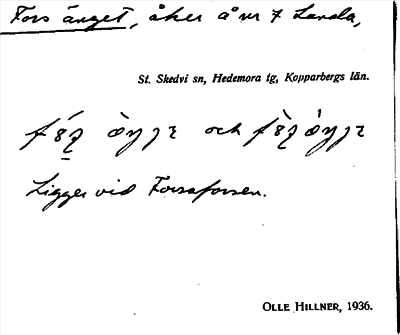 Fors änget, åker å nr 7 Landa,
St. Skedvi sn, Hedemora tg, Kopparbergs län.
och
Ligger vid Forsaforsen.
OLLE HILLNER, 1936.